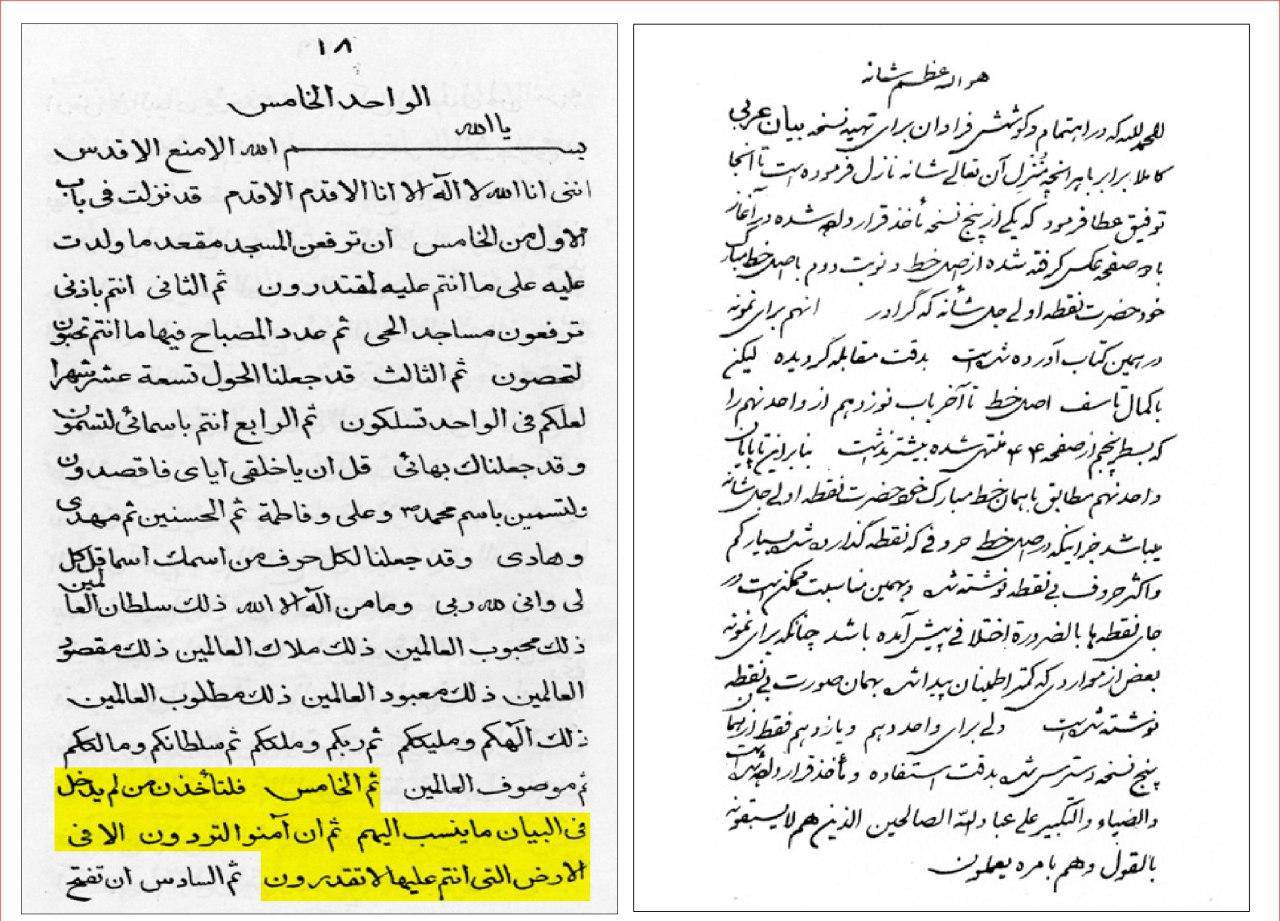 ١٨
الواحد الخامس
يا الله
بســـــم الله الامنع الاقدس
اننی انا الله لا آله الا انا الاقدم الاقدم قد نزلت فی باب
الاول من الخامس ان ترفعن المسجد مقعد ما ولدت
علیه علی ما انتم علیه لمقتدرون ثم الثانی انتم باذنی
ترفعون مساجد الحی ثم عدد المصباح فیها ما انتم تحبون
لتحصون ثم الثالث قد جعلنا الحول تسعة عشر شهرا
لعلکم فی الواحد تسلکون ثم الرابع انتم باسمائی لتسمون
و قد جعلناك بهائی قل ان یا خلقی ایای فاقصدون
ولتسمین باسم محمد و علی و فاطمة ثم الحسنین ثم مهدی
و هادی وقد جعلنا لکل حرف من اسمك اسما قل کل
لی وانی لله ربی وما من آله الا الله ذلك سلطان العالمین
ذلك محبوب العالمین ذلك ملاك العالمین ذلك مقصود
العالمین ذلك معبود العالمین ذلك مطلوب العالمین
ذلك آلهکم وملیککم ثم ربکم وملککم ثم سلطانکم ومالککم
ثم موصوف العالمین ثم الخامس فلتأخذن من لم یدخل
فی البیان ما ینسب الیهم ثم ان آمنوا لتردون الا فی
الارض التی انتم علیها لاتقدرون ثم السادس ان تفتح
هو اله عظم شانه
الحمدلله که در اهتمام و کوشش فراوان برای تهیه نسخه بیان عربی
کاملا برابر با هر انچه مُنزل آن تعالی شانه نازل فرموده است تا انجا
توفیق عطا فرمود که یکی از پنج نسخ مأخذ قرار داده شده در آغاز
با صفحه عکس گرفته شده از اصل خط و نوبت دوم با اصل خط مبارک
خود حضرت نقطه اولی جل شأنه که گراور انهم برای نمونه
در همین کتاب آورده شده است بدقت مقابله گردیده لیکن
با کمال تاسف اصل خط تا آخر باب نوزدهم از واحد نهم را
که بسطر پنجم از صفحه ۴۴ منتهی شده بیشتر نداشت بنابراین تا پایان
واحد نهم مطابق با همان خط مبارک خود حضرت نقطه اولی جل شانه
میباشد جز اینکه در اصل خط حروفی که نقطه گذارده شده بسیار کم
و اکثر حروف بی نقطه نوشته شده و بهمین مناسبت ممکن است در
جای نقطه ها بالضرورة اختلافی پیش آمده باشد چنانکه برای نمونه
بعض از مواردی که کمتر اطمینان پیدا شد بهمان صورت بی نقطه
نوشته شده است ولی برای واحد دهم و یازدهم فقط از همان
پنج نسخه دسترس شده بدقت استفاده و مأخذ قرار داده شده است
والضیاء والتکبیر علی عباد الله الصالحین الذین هم لایسبقونه
بالقول وهم بامره یعملون